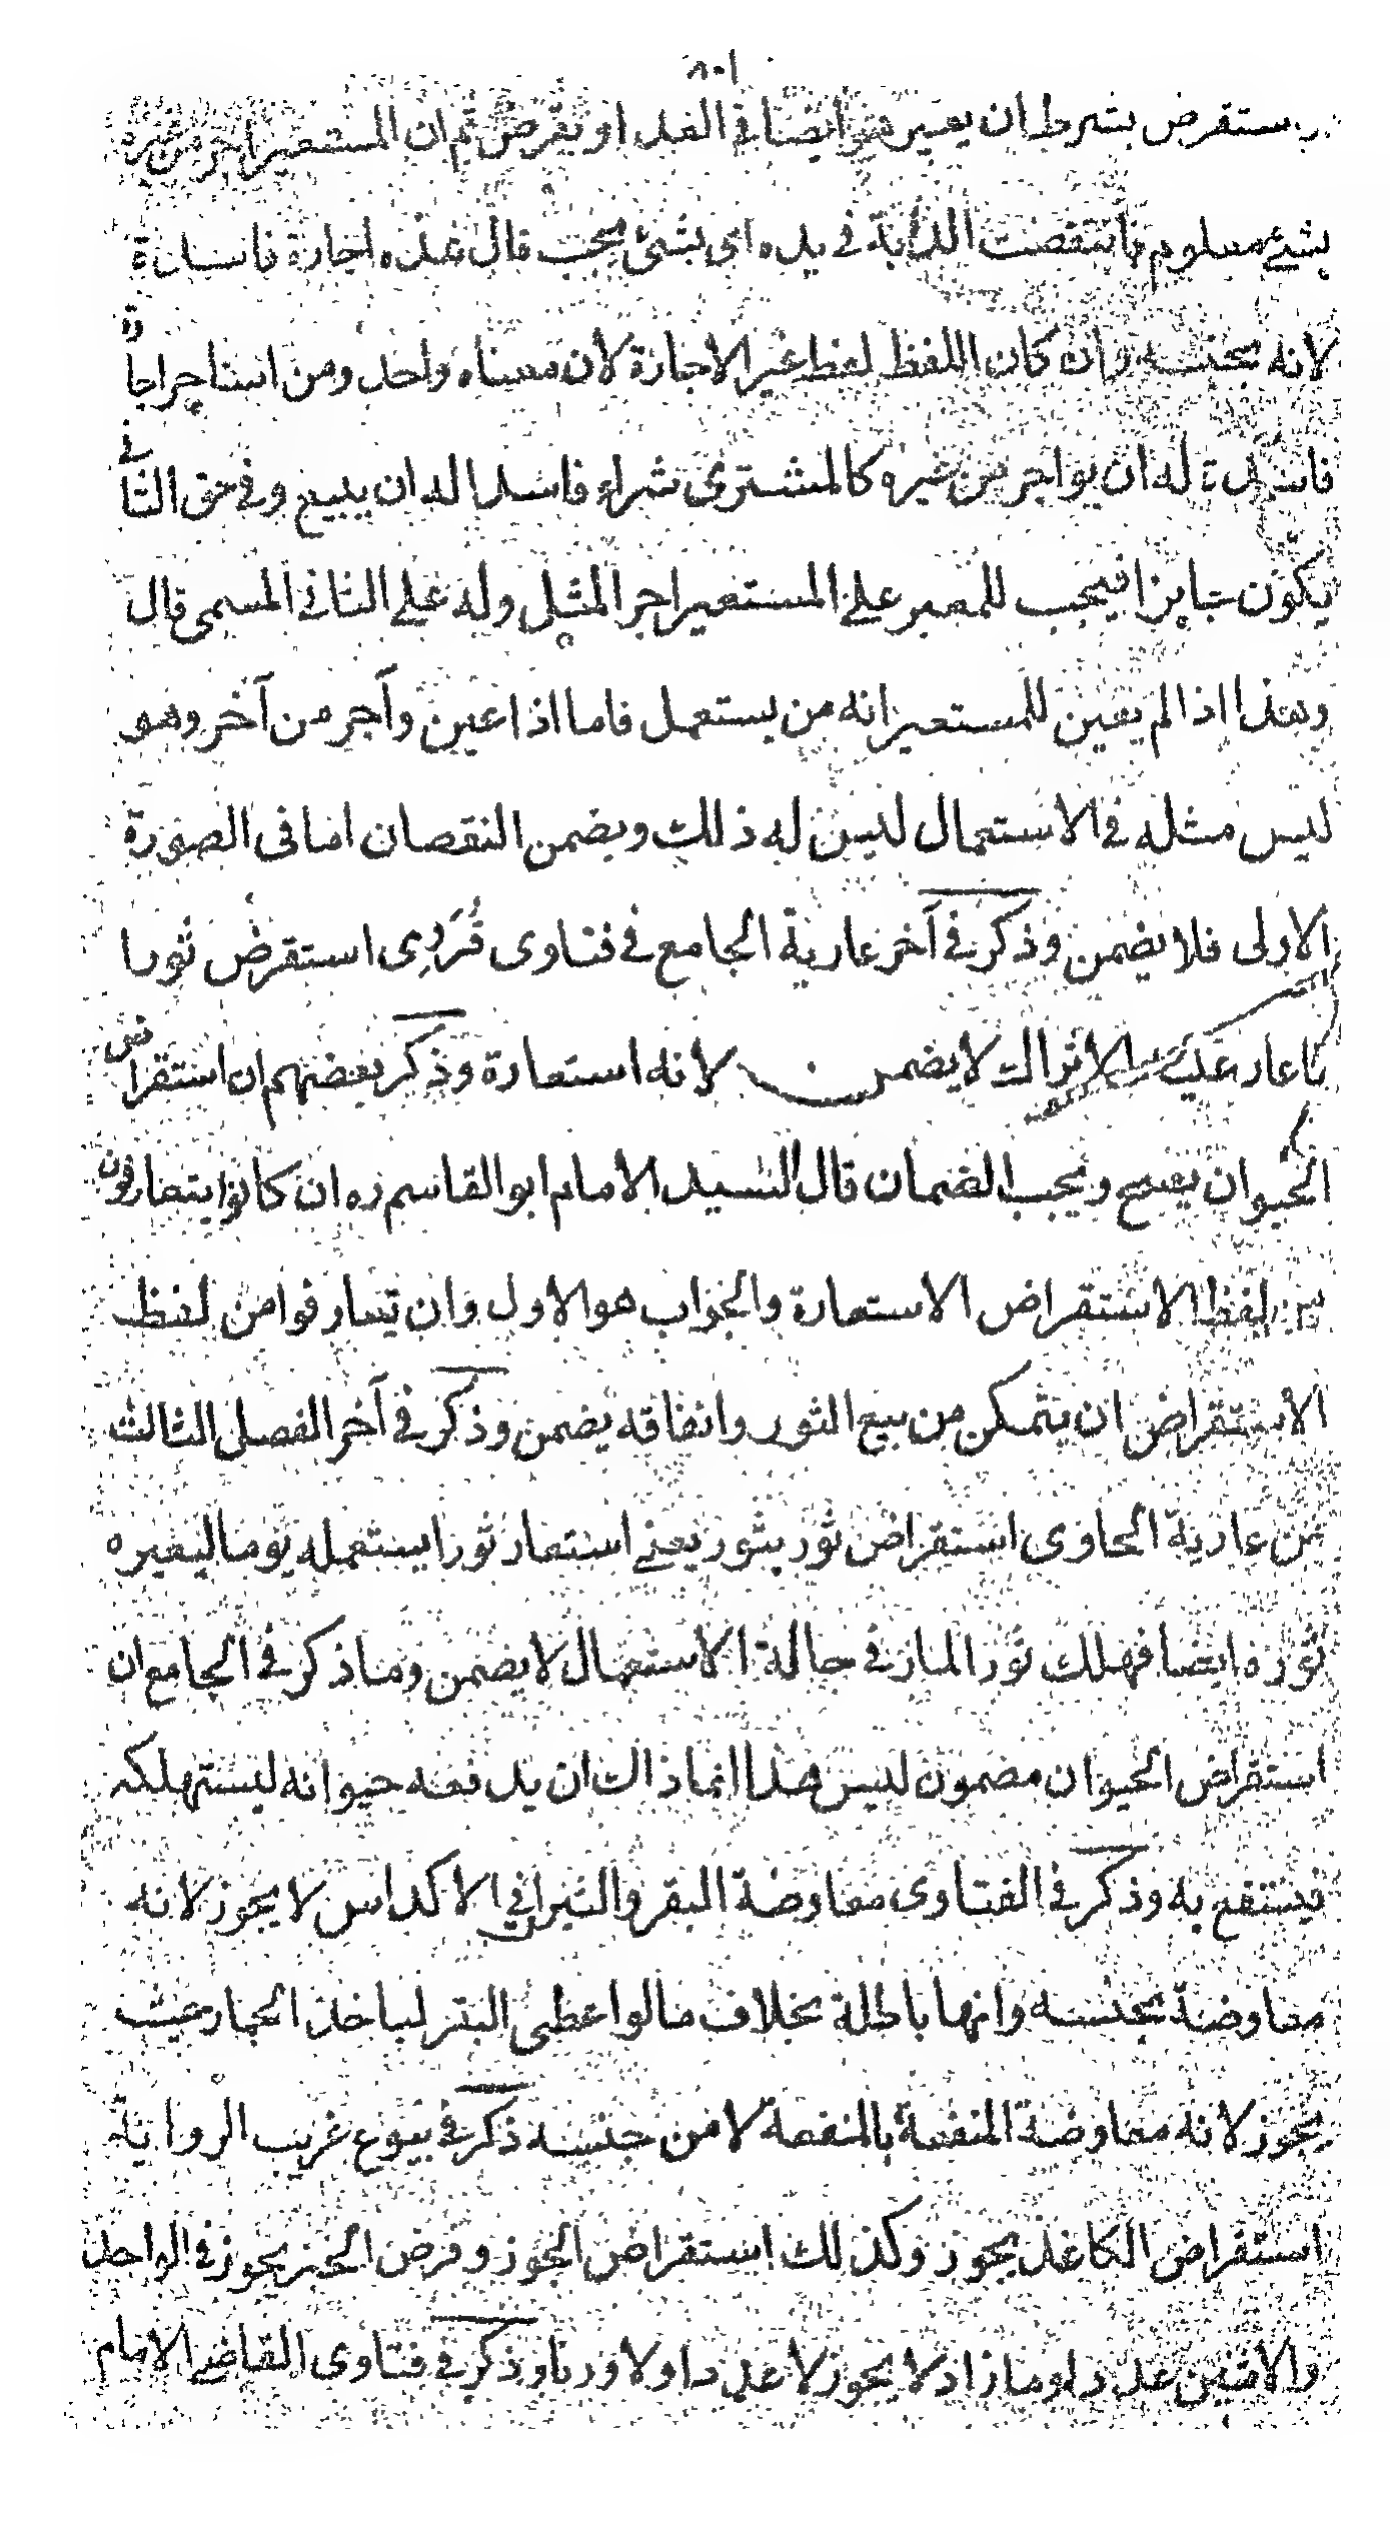 ٨٠١
يستقرض بشرط ان يعير هو ايضا في الغد او يقرض ثم ان المستعير آجر من غيره
بشيء معلوم فانتقصت الدابة في يده اي شئ يجب قال هذه اجارة فاسدة
لانه بجنسه وان كان اللفظ لفظ غير الاجارة لان معناه واحد ومن استاجر اجارة
فاسدة له ان يواجر من غيره كالمشتري شراء فاسدا له ان يبيع وفي حق الثاني
يكون جايزا فيجب للمعير على المستعير اجر المثل وله على الثاني المسمى قال
وهذا اذا لم يعين للمستعير انه من يستعمل فاما اذا عين وآجر من آخر وهو
ليس مثله في الاستعمال ليس له ذلك ويضمن النقصان اما فى الصورة
الاولى فلا يضمن وذكر في آخر عارية الجامع في فتاوى استقرض ثورا
فاعار الاتراك لا يضمن لانه استعارة وذكر بعضهم ان استقراض
الحيوان يصح ويجب الضمان قال السيد الامام ابو القاسم ره ان كانوا يتعارفون
من لفظ الاستقراض الاستعارة والجواب هو الاول وان تعارفوا من لفظ
الاستقراض ان يتمكن من بيع الثور وانفاقه يضمن وذكر في آخر الفصل الثالث
من عارية الحاوى استقراض ثور بثور يعني استعار ثورا يستعمله يوما ليعيره
ثوره ايضا فهلك ثور المار في حالة الاستعمال لا يضمن وما ذكر في الجامع ان
استقراض الحيوان مضمون ليس هذا انما ذاك ان يدفعه حيوانه ليستهلكه
فينتفع به وذكر في الفتاوى معاوضة البقر والثيران في الاكداس لا يجوز لانه
معاوضة بجنسه وانها باطلة بخلاف ما لو اعطى البقر لياخذ الحمار حيث
يجوز لانه معاوضة المنفعة بالمنفعة لا من جنسه ذكر في بيوع غريب الرواية
استقراض الكاغذ يجوز وكذلك استقراض الجوز وقرض الخبز يجوز في الواحد
والاثنين عددا وما زاد لا يجوز لا عددا ولا وزنا وذكر في فتاوى القاضي الامام